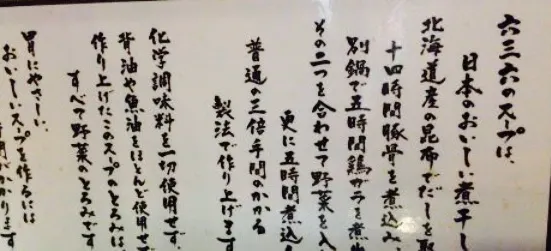 六三六のスープは、
日本のおいしい煮干し
北海道産の昆布でだしを
十四時間豚骨を煮込み
別鍋で五時間鶏ガラを煮
その二つを合わせて野菜を入
更に五時間煮込
普通の三倍手間のかかる
製法で作り上げます
化学調味料を一切使用せず
背油や魚油をほとんど使用せず
作り上げたこのスープのとろみは
すべて野菜のとろみです
胃にやさしい、
おいしいスープを作るには
時間がかかります